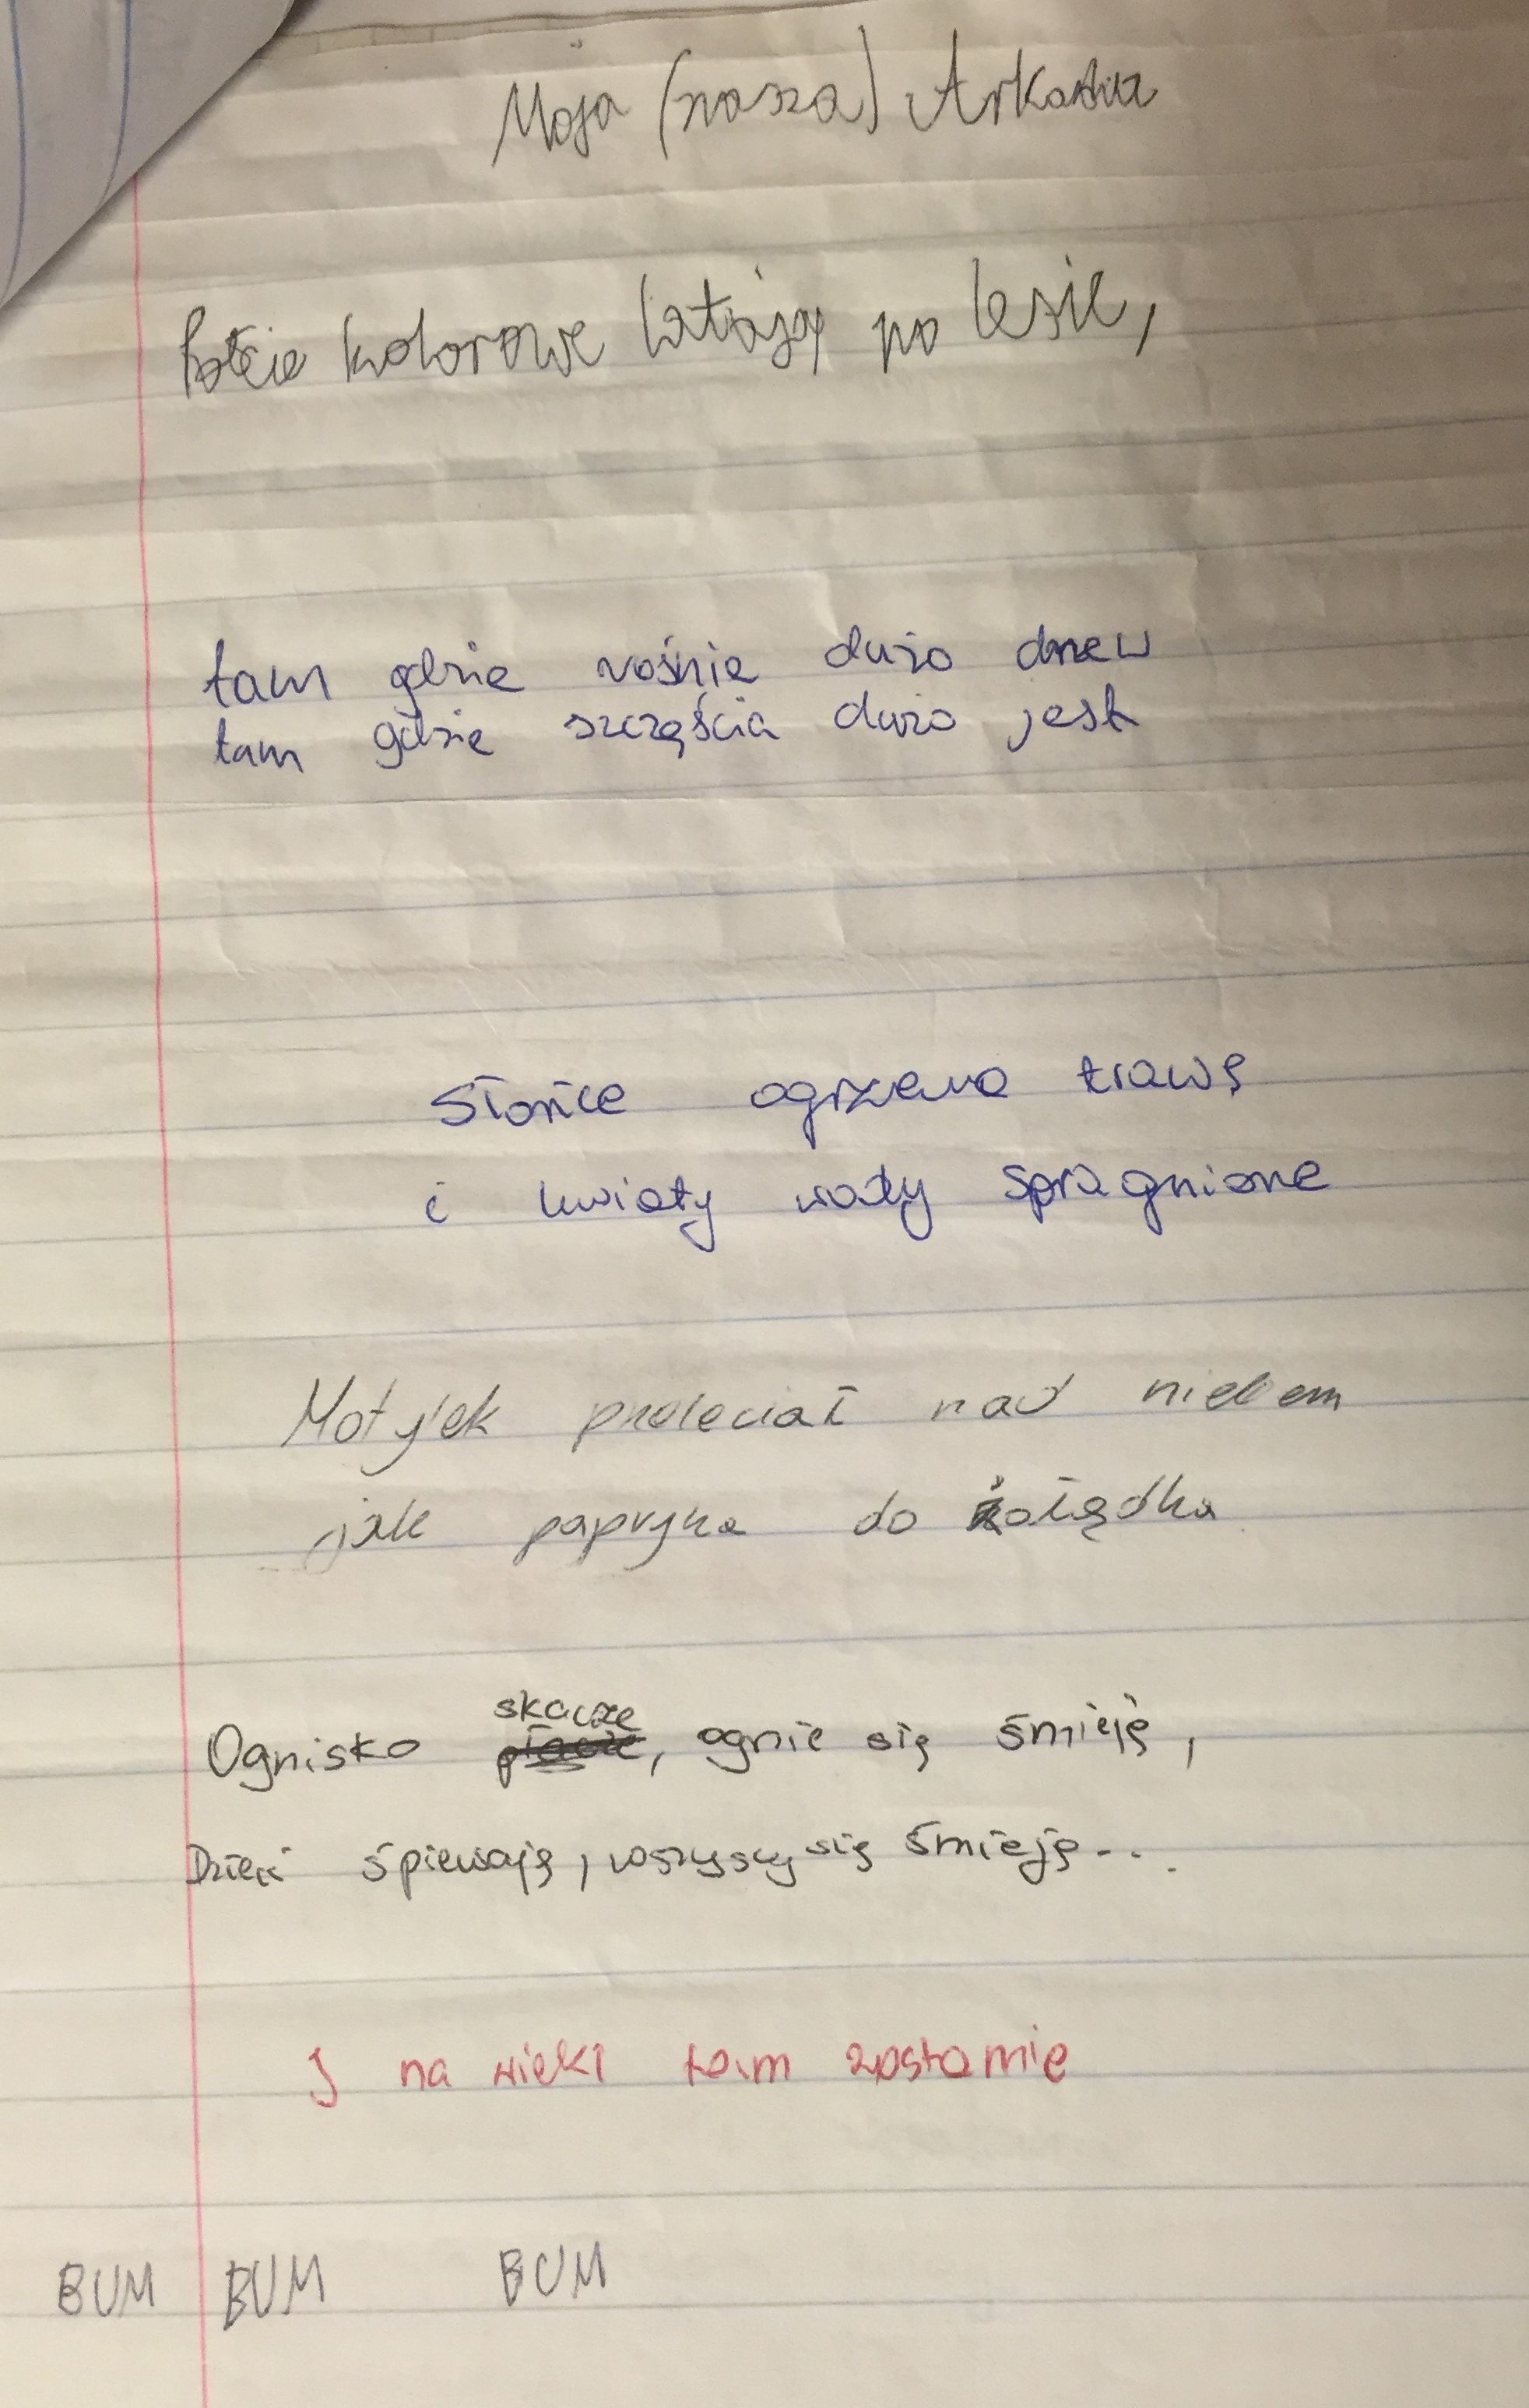 Moja (nasza) Arkadia
Ptaki kolorowe latają po lesie,
tam gdzie rośnie dużo drzew
tam gdzie szczęścia dużo jest
Słońce ogrzewa trawę
i kwiaty wody spragnione
Motylek przeleciał nad niebem
jak papryka do żołądka
skacze
Ognisko płacze, ognie się śmieję,
Dzieci śpiewają, wszyscy się śmieję...
I na wieki tam zostanie
BUM BUM BUM